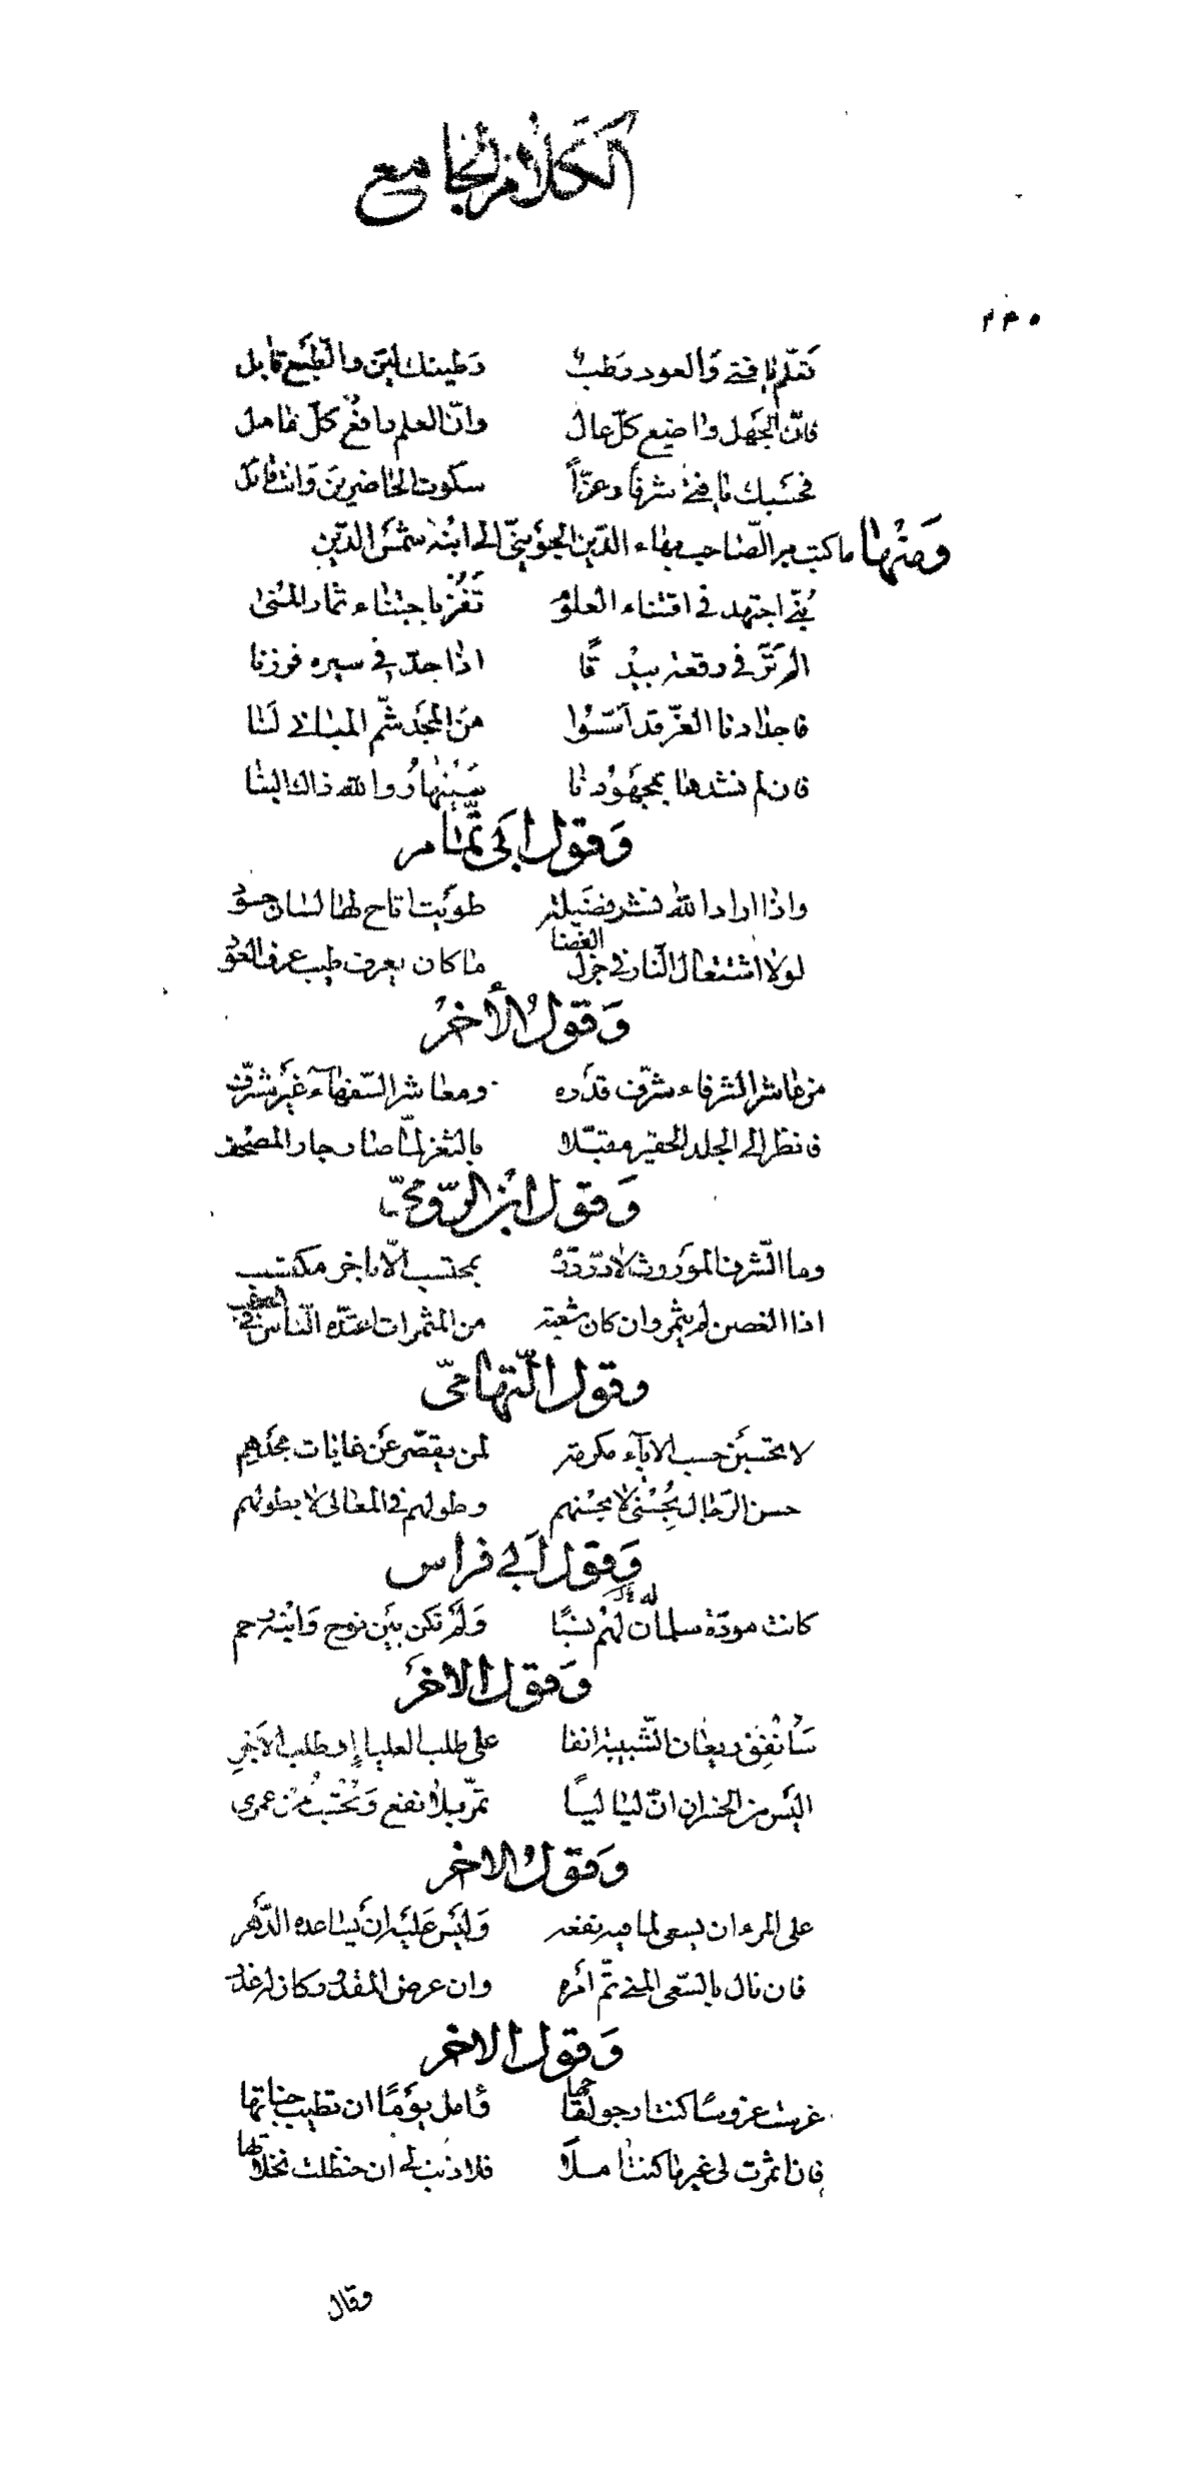 الكلام الجامع
٢٣٥
تعلّم يا فتى والعود رطب وطينك ليّن والطبع قابل
فانّ الجهل واضع كلّ عال وانّ العلم رافع كلّ خامل
فحسبك يا فتى شرفا وعزّاً سكوت الحاضرين وانت قائل
ومنها ما كتب به الصّاحب بهاء الدّين الجوينيّ الى ابنه شمس الدّين
بنيّ اجتهد في اقتناء العلوم تفز باجتناء ثمار المنى
الم تر في رقعة بيدقا اذا جدّ في سيره فرزنا
فاجدادنا الغرّ قد اسّسوا من المجد شمّ المباني لنا
فان لم نشدها بمجهودنا سينهار والله ذاك البنا
وقول ابى تمّام
واذا اراد الله نشر فضيلة طويت اتاح لها لسان حسود
لولا اشتعال النار في جزل الغضا ما كان يعرف طيب عرف العود
وقول الأخر
من عاشر الشرفاء شرّف قدره ومعاشر السّفهاء غير مشرّف
فانظر الى الجلد الحقير مقبّلا بالثغر لمّا صار جار المصحف
وقول ابن الرّوميّ
وما الشّرف الموروث لا درّ درّه بمحتسب الّا باخر مكتسب
اذا الغصن لم يثمر وان كان شعبة من المثمرات اعتدّه النّاس في الحطب
وقول التّهاميّ
لا تحسبن حسب الاباء مكرمة لمن يقصّر عن غايات مجدهم
حسن الرّجال بحسنى لا بحسنهم وطولهم في المعالى لا بطولهم
وقول ابي فراس
كانت مودّة سلمان لهم نسبًا ولم تكن بين نوح وابنه رحم
وقول الاخر
سأنفق ريعان الشّبيبة انفا على طلب العليا او طلب الاجر
اليس من الخسران انّ لياليًا تمرّ بلا نفع وتحسب من عمرى
وقول الاخر
على المرء ان يسعى لما فيه نفعه وليس عليه ان يساعده الدّهر
فان نال بالسّعى المنى تمّ امره وان عرض المقدور كان له عذر
وقول الاخر
غرست غروسًا كنت ارجو لقاحها وامل يومًا ان تطيب جناتها
فان اثمرت لى غير ما كنت املا فلا ذنب لى ان حنظلت نخلاتها
وقال